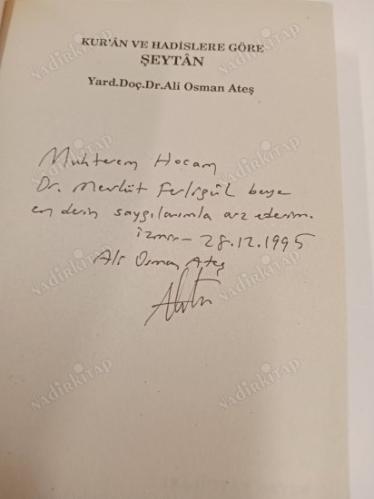 KUR'ÂN VE HADİSLERE GÖRE
ŞEYTÂN
Yard.Doç.Dr.Ali Osman Ateş
Muhterem Hocam
Dr. Mevlüt beye
en derin saygılarımla arz ederim.
İzmir - 28.12.1995
Ali Osman Ateş
NADİRKİTAP